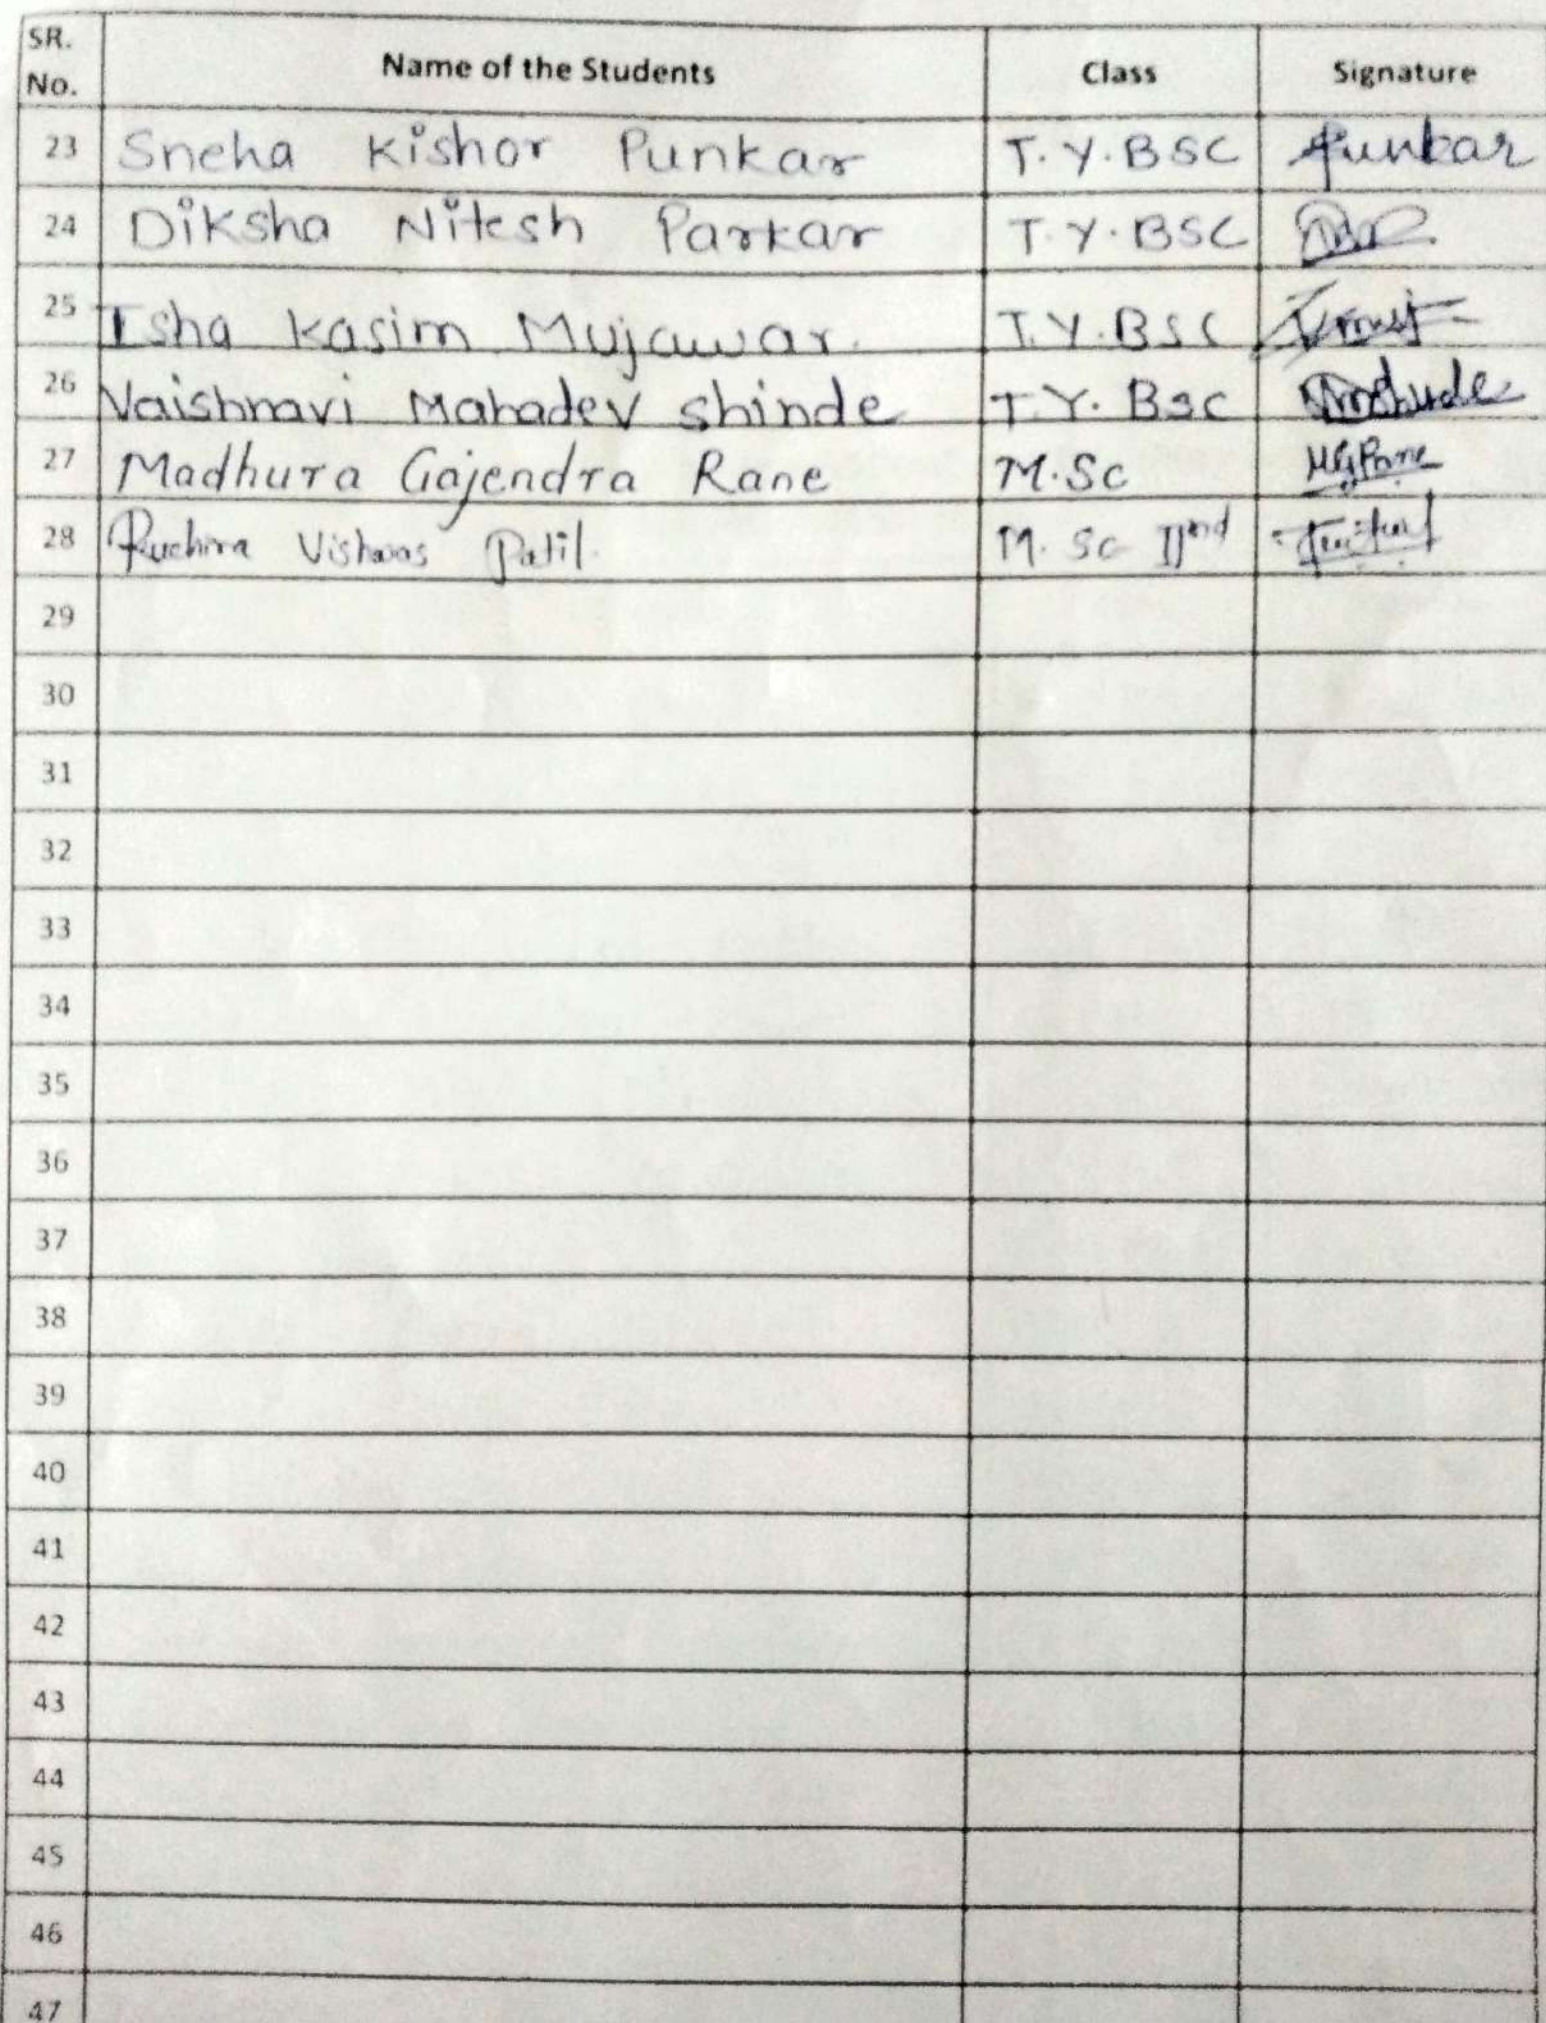 SR. No. Name of the Students Class Signature
23 Sneha Kishor Punkar T.Y.BSC Punkar
24 Diksha Nitesh Parkar T.Y.BSC
25 Isha Kasim Mujawar. T.Y.BSC
26 Vaishnavi Mahadev Shinde T.Y.Bsc
27 Madhura Gajendra Rane M.Sc MGRane
28 Ruchira Vishwas Patil. M.Sc IInd
29
30
31
32
33
34
35
36
37
38
39
40
41
42
43
44
45
46
47